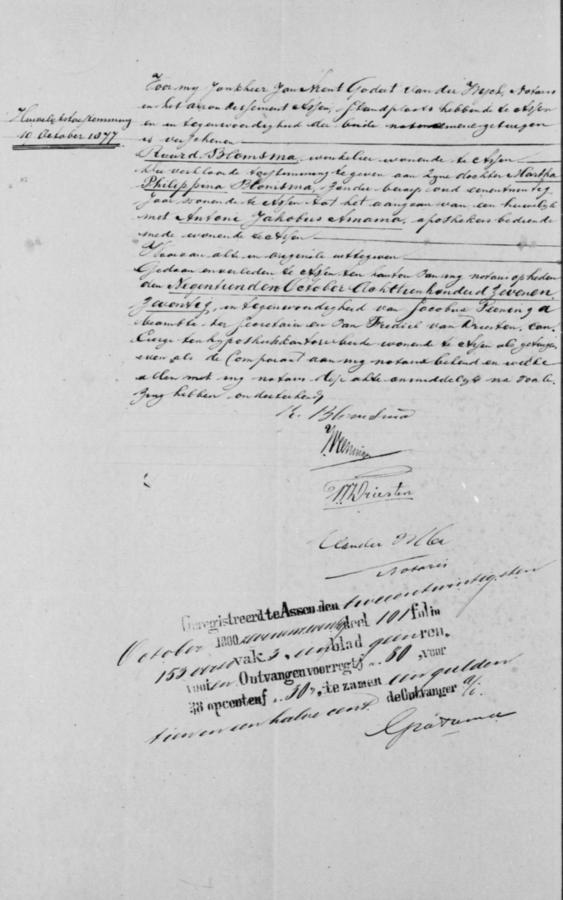 Huwelijkstoestemming
19 October 1877.
Voor my Jonkheer Jan Arent Godert van der Notaris
in het arrondissement Assen, Standplaats hebbende te Assen
en in tegenwoordigheid der beide getuigen
is verschenen
Ruurd Blomsma, winkelier wonende te Assen
Die verklaarde toestemming te geven aan zyne dochter Martha
Philippina Blomsma, zonder beroep oud eenentwintig
Jaar wonende te Assen tot het aangaan van een huwelyk
met Antoni Jakobus Amama, apothekers bediende
mede wonende te Assen
Waarvan akte in originale uittegeven
Gedaan en verleden te Assen ten kantore van my notaris op heden
den Negentienden October Achttienhonderd Zevenen
Zeventig, in tegenwoordigheid van Jacobus
beambte ter Secretarie en Jan van Driesten, con
cierge ten hypotheekkantore beide wonend te Assen als getuigen
even als de Comparant aan my notaris bekend en welke
allen met my notaris deze akte onmiddelyk na voorle
zing hebben onderteekend
R. Blomsma
Driesten
van der
Notaris
Geregistreerd te Assen den tweeentwintigsten
October 1800 deel 101 folio
153 vak 3, een blad geen ren.
voor Ontvangen voor regt f „ 80 , voor
38 opcenten f „ 30, te zamen een gulden
tien en een halve cent de Ontvanger
Gratama